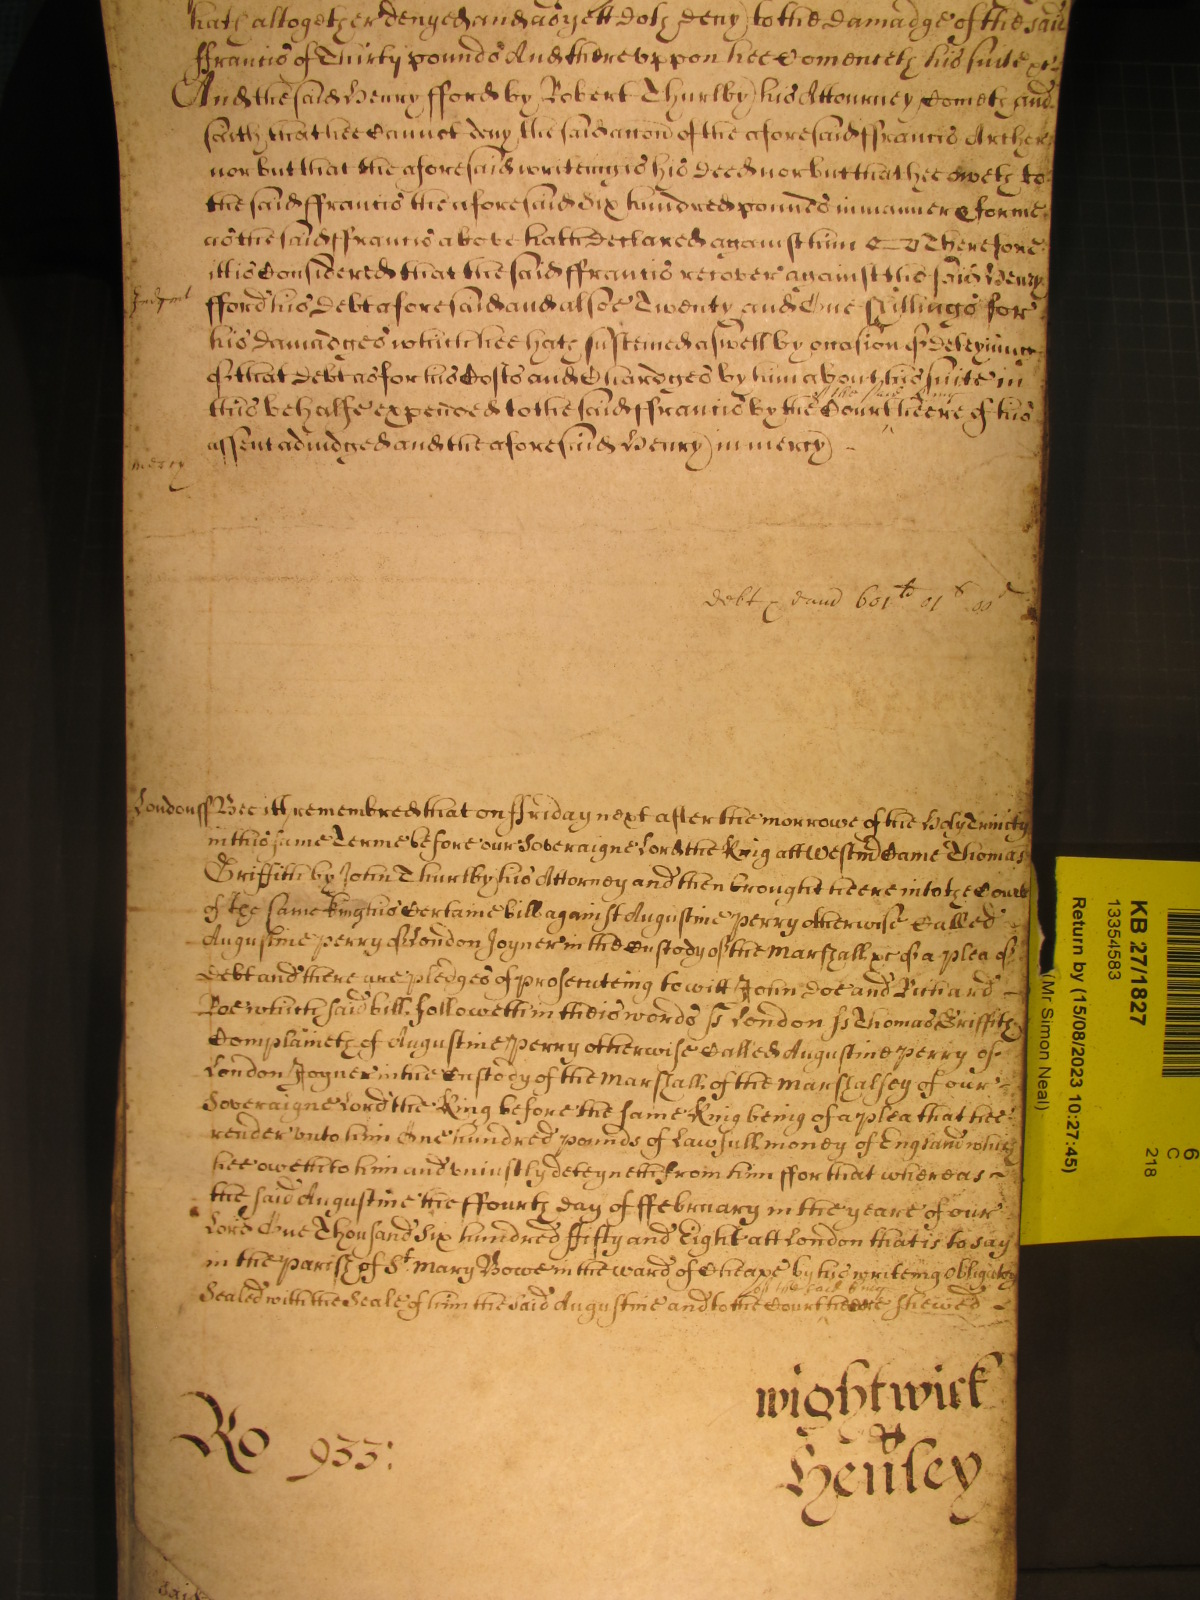 hath altogether denyed and as yett doth deny) to the damadge of the said
ffrancis of Thirty pounds And thereuppon hee Comenceth his suite &c
And the said Henry fford by Robert Thurlby his Attourney Cometh and
saith that hee Cannot deny the said accon of the aforesaid ffrancis Archer
nor but that the aforesaid writeing is his deed nor but that hee oweth to
the said ffrancis the aforesaid Six hundred pounds in manner & forme
as the said ffrancis above hath Declared against him Therefore
Judgmt
itt is Considered that the said ffrancis recover against the said Henry
fford his Debt aforesaid and alsoe Twenty and One shillings for
his damadges which hee hath susteined aswell by occasion of deteyning
of that debt as for his Costs and Chardges by him about his suite in
of the said King
this behalfe expended to the said ffrancis by the Court heere of his
assent adiudged and the aforesaid Henry in mercy) -
mercy
debt & dam̄ 601li 01s 00d
London ss Bee itt remembred that on ffriday next after the morrowe of the Holy Trinity
in this same Terme before our Soveraigne Lord the King att Westmr Came Thomas
Griffith by John Thurlby his Attorney and then brought heere into the Court
of the same King his Certaine bill against Augustine Perry otherwise Called
Augustine Perry of London Joyner in the Custody of the Marshall &c of a plea of
Debt and there are pledges of prosecuteing to witt John Doe and Richard
Roe which said bill followeth in theis words ss London ss Thomas Griffith
Complaineth of Augustine Perry otherwise Called Augustine Perry of
London Joyner in the Custody of the Marshall of the Marshalsey of our
Soveraigne Lord the King before the same King being of a plea that hee
render unto him One hundred pounds of lawfull money of England which
hee oweth to him and uniustly deteyneth from him ffor that whereas
the said Augustine the ffourth day of ffebruary in the yeare of our
Lord One Thousand Six hundred ffifty and Eight att London that is to say
in the Parish of St Mary Bowe in the ward of Cheape by his writeing obligatory
of the said King
Sealed with the Seale of him the said Augustine and to the Court heere shewed
Wightwick
&
Henley
Ro 933:
said
KB 27/1827
13354583
Return by (15/08/2023 10:27:45)
(Mr Simon Neal)
6
C
218